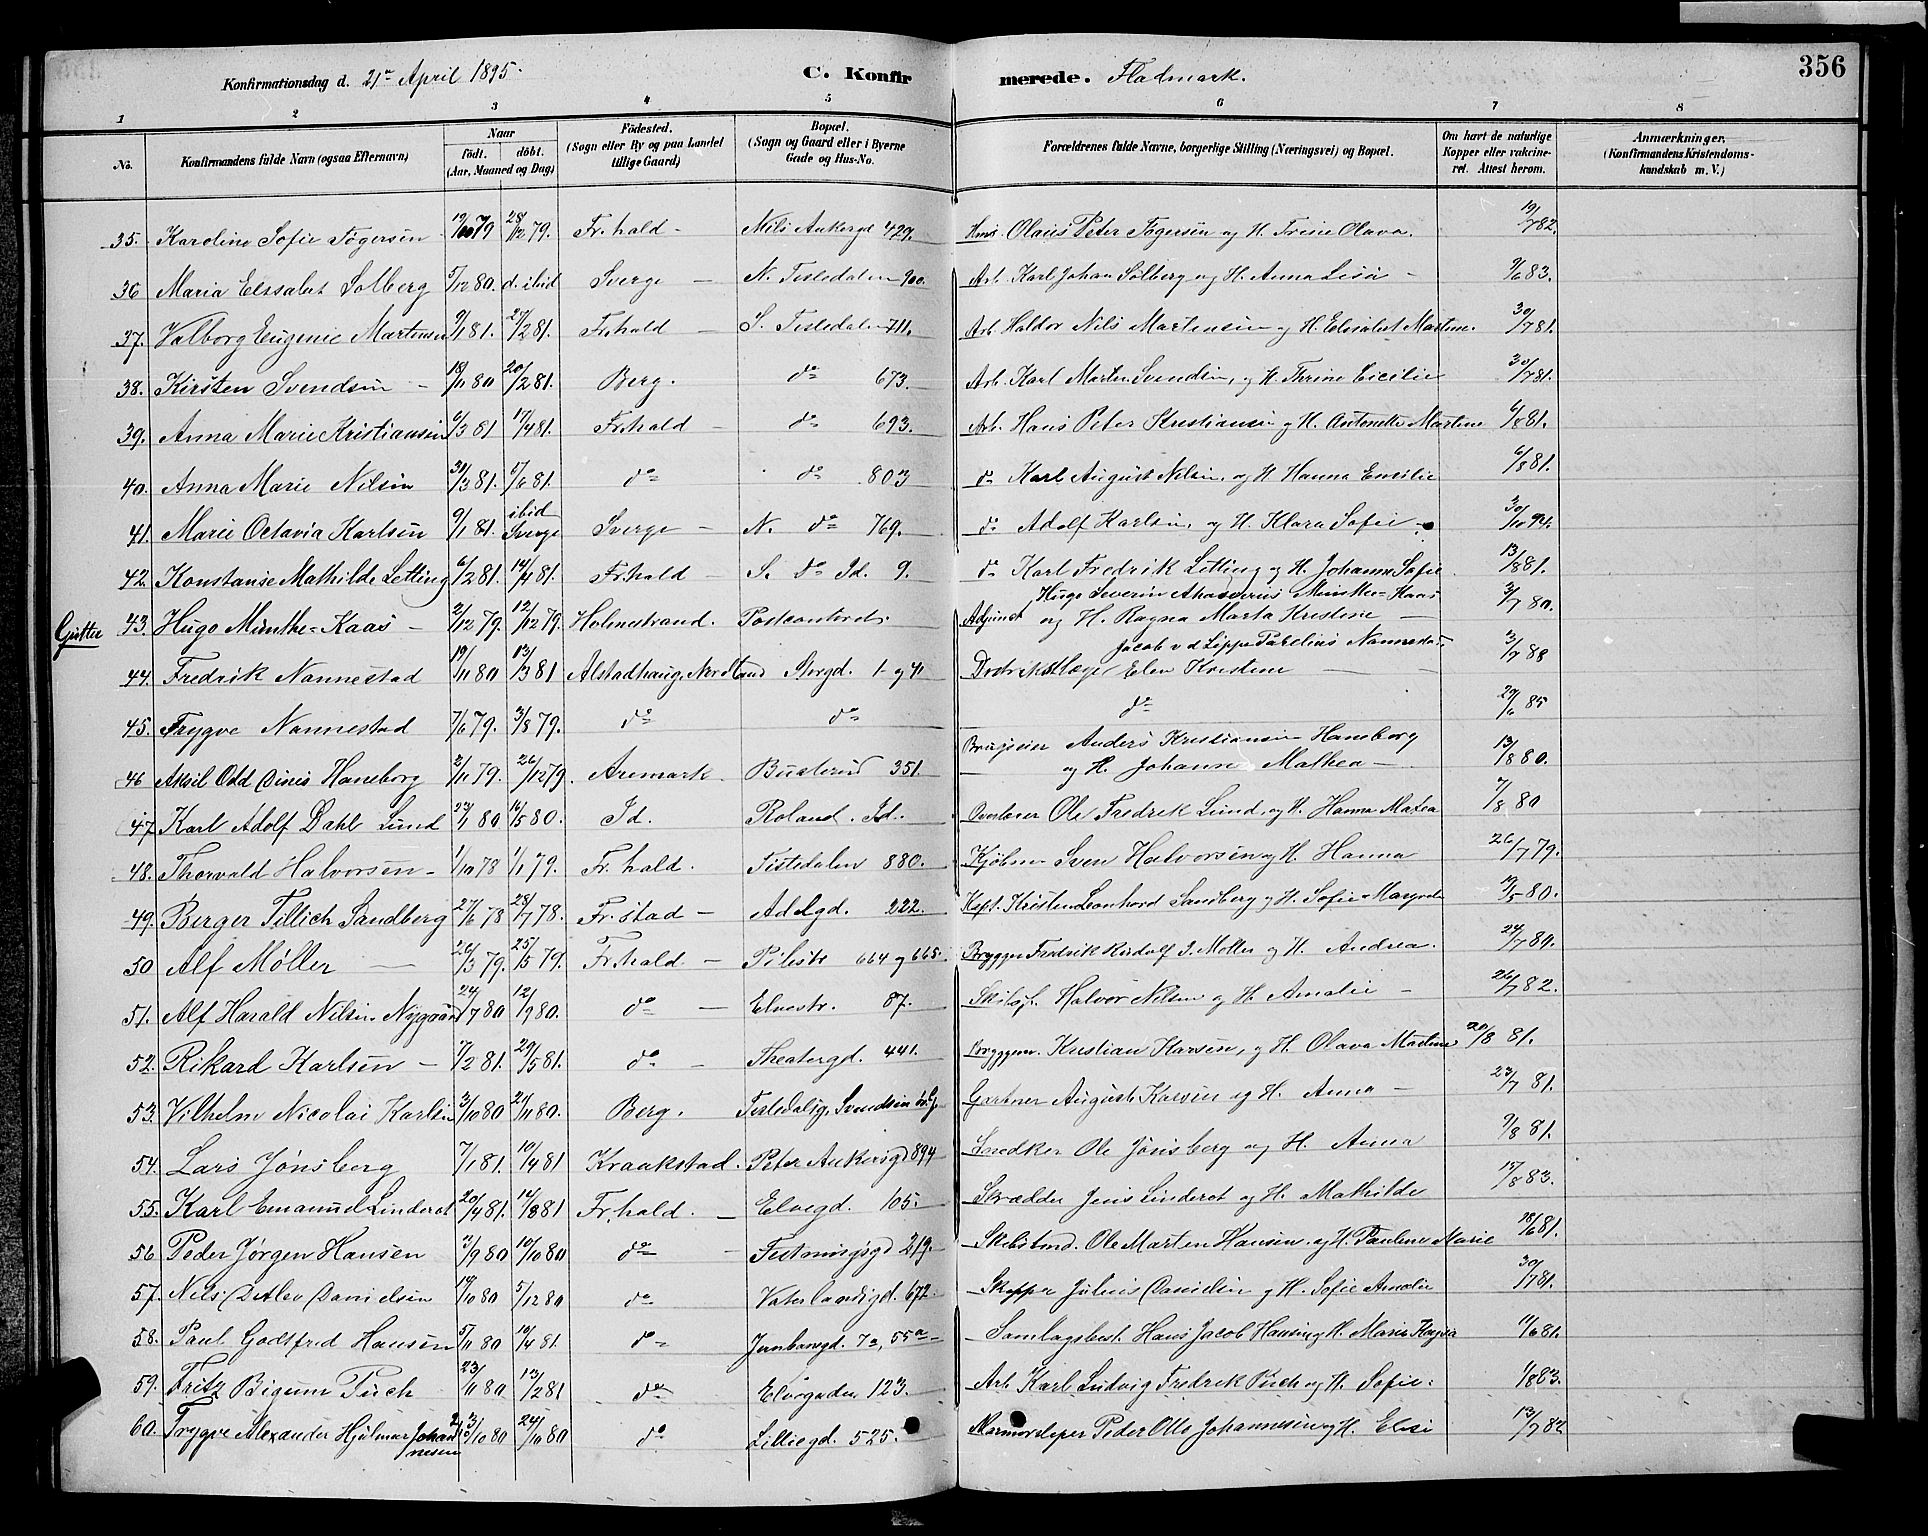 356
Konfirmationsdag d. 21de April 1895. C. Konfirmerede. Fladmark.
1 2 3 4 5 6 7 8
No. Konfirmandens fulde Navn (ogsaa Efternavn) Naar født. døbt. (Aar, Maaned og Dag) Fødested. (Sogn eller By og paa Landet tillige Gaard) Bopæl. (Sogn og Gaard eller i Byerne Gade og Hus-No. Forældrenes fulde Navne, borgerlige Stilling (Næringsvei) og Bopæl. Om havt de naturlige Kopper eller vakcineret. Attest herom. Anmærkninger, (Konfirmandens Kristendomskundskab m. V.)
35. Karoline Sofie Togersen 19/10 79 28/12 79. Fr.hald - Nils Ankersgd 429. Olaus Peter Togersen og H. Trine Olava. 19/7 82.
36 Maria Elisabet Solberg 5/12 80. d. ibid Sverge - N. Tistedalen 900. Arb. Karl Johan Solberg og H. Anna Lisa - 9/6 83.
37. Valborg Eugenie Martensen 9/1 81. 27/2 81. Fr.hald - S. Tistedalen 711. Arb. Haldor Nils Martensen og H. Elisabet Martine. 30/7 81.
38. Kirsten Svendsen - 18/11 80 20/2 81. Berg. do 673. Arb. Karl Martin Svendsen, og H. Thrine Cicilie 30/7 81.
39. Anna Marie Kristiansen 6/3 81 17/4 81. Fr.hald - do 693. Arb. Hans Peter Kristiansen og H. Antonette Martine 6/8 81.
40. Anna Marie Nilsen 30/3 81. 5/6 81. do do 803 do Karl August Nilsen, og H. Hanna Emilie 6/8 81.
41. Marie Octavia Karlsen 9/1 81. ibid Sverge Sverge - N. do 769. do Adolf Karlsen, og H. Klara Sofie - 30/10 94.
42. Konstanse Mathilde Letting 6/2 81. 14/4 81. Fr.hald - S. do Id. 9. do Karl Fredrik Letting og H. Johanna Sofie 13/8 81.
Gutter 43. Hugo Munthe-Kaas - 2/12 79. 12/12 79. Holmestrand. Postcontoret. Adjunct Hugo Severin Ahasverus Munthe-Kaas og H. Ragna Marta Kristine - 3/7 80.
44. Fredrik Nannestad 19/11 80 13/3 81 Alstadhaug, Nordland Storgd. 1 og 4 Distriktslæge Jacob v d Lippe Parelius Nannestad Elen Kristine - 3/7 88
45. Trygve Nannestad 7/6 79. 3/8 79. do do do 29/6 85
46 Aksil Odd Dines Haneborg 2/11 79. 26/12 79. Aremark. Busterud 351. Brugseier Anders Kristiansen Haneborg og H. Johanne Mathea - 13/8 80.
47. Karl Adolf Dahl Lund 27/1 80 16/5 80. Id. Roland. Id. Overlærer Ole Fredrik Lund, og H. Hanna Matea 7/8 80
48. Thorvald Halvorsen - 1/10 78 1/1 79. Fr.hald. Tistedalen 880. Kjøbm. Sven Halvorsen og H. Hanna 26/7 79.
49. Berger Tillich Sandberg 27/6 78 28/7 78. Fr.stad - Adelgd. 222. Kapt. Kristen Leonhard Sandberg og H. Sofie Margrete 19/5 80.
50 Alf Møller - 26/3 79. 25/5 79. Fr.hald - Pilestr 664 og 665. Brygger Fredrik Rudolf J. Møller og H. Andrea. 24/7 80.
51. Alf Harald Nilsen Nygaard 24/7 80 12/9 80. do - Elvestr. 87. Halvor Nilsen og H. Amalie - 26/7 82.
52. Rikard Karlsen - 7/2 81. 29/5 81. do - Theatergd. 441. Bryggem. Kristian Karsen, og H. Olava Martine 20/8 81.
53. Vilhelm Nicolai Karlsen 3/10 80 21/11 80. Berg. Tistedalsg. Svendsen Gartner August Karsen og H. Anna - 23/7 81.
54. Lars Jønsberg 7/1 81. 10/4 81 Kraakstad. Peter Ankersgd 894 Snedker Ole Jønsberg og H. Anna 9/8 81.
55. Karl Emanuel Linderot 20/4 81. 14/8 81 Fr.hald. - Elvegd. 105. Skrædder Jens Linderot og H. Mathilde 15/8 83.
56 Peder Jørgen Hansen 3/9 80 10/10 80 do - Festningsgd 219. Ole Marten Hansen og H. Pauline Marie 18/6 81.
57. Nils Detlev Danielsen 19/10 80 5/12 80 do Vaterlandsgd. 672. Skipper Julius Danielsen og H. Sofie Amalie 30/7 81.
58. Paul Godtfred Hansen 5/11 80 10/4 81. do Jernbanegd. 7a, 55a Samlagsbest. Hans Jacob Hansen og H. Maria Kaysa 11/6 81.
59. Fritz Bigum Puch 23/11 80 13/2 81 do Elvegaden 123. Arb. Karl Ludvig Fredrik Puch og H. Sofie. 1/8 83.
60. Trygve Alexander Hjalmar Johannesen 3/10 80 24/10 80 do Lilliegd. 525. Marmorsleper Peder Otto Johannesen og H. Elise 13/7 82